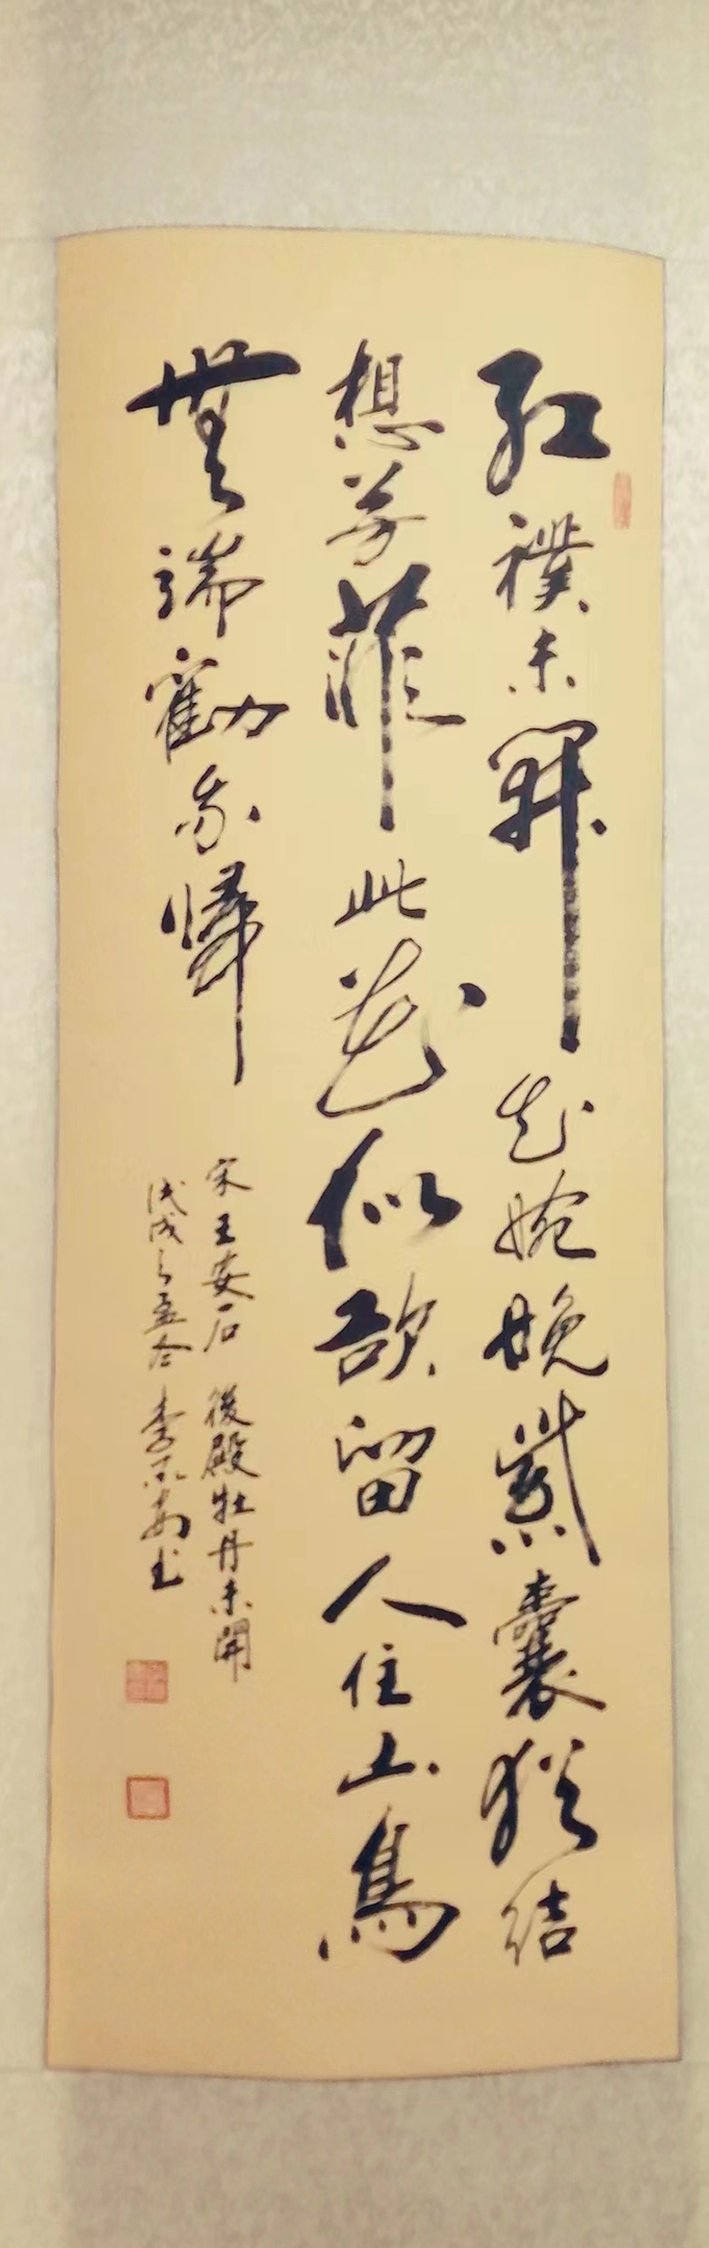 紅襆未開知婉娩紫囊猶結
想芳菲此花似欲留人住山鳥
無端勸我歸
宋王安石 後殿牡丹未開
戊戌之孟 李 書